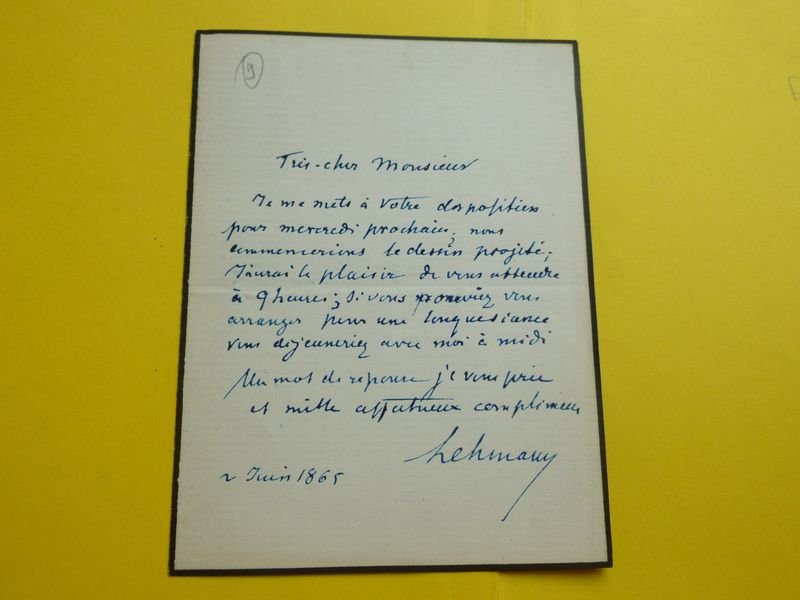 9
Très-cher Monsieur
Je me mets à votre disposition
pour mercredi prochain, nous
commencerions le dessin projeté;
J'aurai le plaisir de vous attendre
à 9 heures; Si vous pouviez vous
arranger pour une longue séance
vous déjeuneriez avec moi à midi
Un mot de réponse je vous prie
et mille affectueux compliments
Lehmann
2 Juin 1865